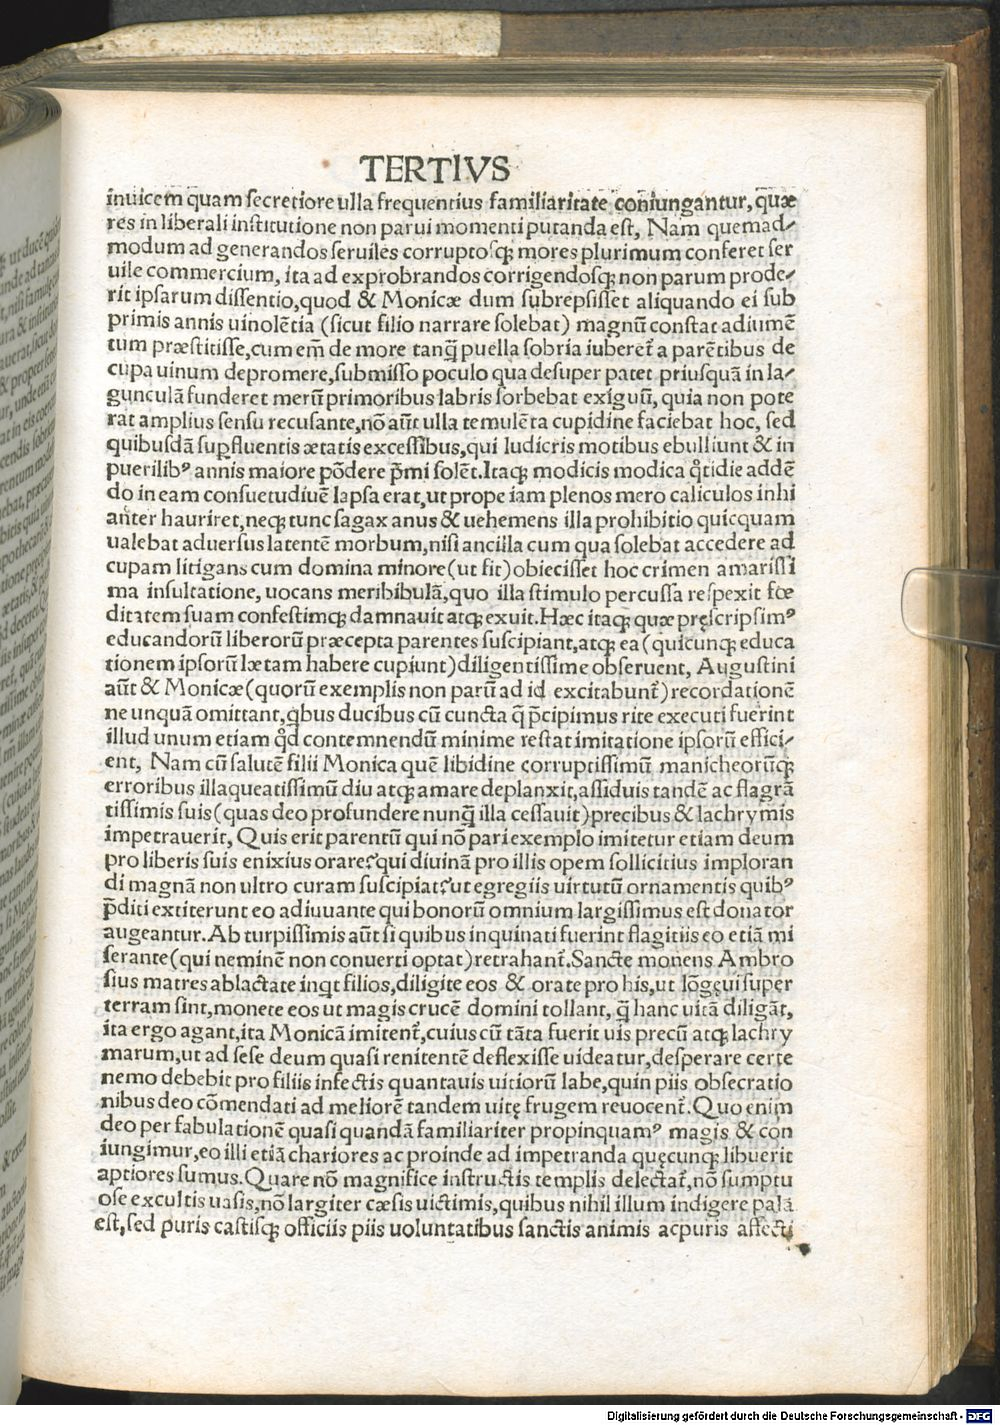 TERTIVS
inuicem quam secretiore ulla frequentius familiaritate coniungantur, quæ
res in liberali institutione non parui momenti putanda est, Nam quemad-
modum ad generandos seruiles corruptosq; mores plurimum conferet ser
uile commercium, ita ad exprobrandos corrigendosq; non parum prode-
rit ipsarum dissentio, quod & Monicæ dum subrepsisset aliquando ei sub
primis annis uinolẽtia (sicut filio narrare solebat) magnũ constat adiumẽ
tum præstitisse, cum em̃ de more tanq̃ puella sobria iuberet᷑ a parẽtibus de
cupa uinum depromere, submisso poculo qua desuper patet priusquã in la-
gunculã funderet merũ primoribus labris sorbebat exiguũ, quia non pote
rat amplius sensu recusante, nõ aũt ulla temulẽta cupidine faciebat hoc, sed
quibusdã suꝑfluentis ætatis excessibus, qui ludicris motibus ebulliunt & in
puerilibꝰ annis maiore põdere p̃mi solẽt. Itaq; modicis modica q̊tidie addẽ
do in eam consuetudiuẽ lapsa erat, ut prope iam plenos mero caliculos inhi
anter hauriret, neq; tunc sagax anus & uehemens illa prohibitio quicquam
ualebat aduersus latentẽ morbum, nisi ancilla cum qua solebat accedere ad
cupam litigans cum domina minore (ut fit) obiecisset hoc crimen amarissi
ma insultatione, uocans meribibulã, quo illa stimulo percussa respexit fœ
ditatem suam confestimq; damnauit atq; exuit. Hæc itaq; quæ pręscripsimꝰ
educandorũ liberorũ præcepta parentes suscipiant, atq; ea (quicunq; educa
tionem ipsorũ lætam habere cupiunt) diligentissime obseruent, Augustini
aũt & Monicæ (quorũ exemplis non parũ ad id excitabunt᷑) recordationẽ
ne unquã omittant, q̊bus ducibus cũ cuncta q̃ p̃cipimus rite executi fuerint
illud unum etiam q̊d contemnendũ minime restat imitatione ipsorũ effici-
ent, Nam cũ salutẽ filii Monica quẽ libidine corruptissimũ manicheorũq;
erroribus illaqueatissimũ diu atq; amare deplanxit, assiduis tandẽ ac flagrã
tissimis suis (quas deo profundere nunq̃ illa cessauit) precibus & lachrymis
impetrauerit, Quis erit parentũ qui nõ pari exemplo imitetur etiam deum
pro liberis suis enixius orare? qui diuinã pro illis opem sollicitius imploran
di magnã non ultro curam suscipiat? ut egregiis uirtutũ ornamentis quibꝰ
p̃diti extiterunt eo adiuuante qui bonorũ omnium largissimus est donator
augeantur. Ab turpissimis aũt si quibus inquinati fuerint flagitiis eo etiã mi
serante (qui neminẽ non conuerti optat) retrahant᷑. Sancte monens Ambro
sius matres ablactate inq̊t filios, diligite eos & orate pro his, ut lõgęui super
terram sint, monete eos ut magis crucẽ domini tollant, q̃ hanc uitã diligãt,
ita ergo agant, ita Monicã imitent᷑, cuius cũ tãta fuerit uis precũ atq; lachry
marum, ut ad sese deum quasi renitentẽ deflexisse uideatur, desperare certe
nemo debebit pro filiis infectis quantauis uitiorũ labe, quin piis obsecratio
nibus deo cõmendati ad meliorẽ tandem uitę frugem reuocent᷑. Quo enim
deo per fabulationẽ quasi quandã familiariter propinquamꝰ magis & con
iungimur, eo illi etiã chariores ac proinde ad impetranda quęcunq; libuerit
aptiores sumus. Quare nõ magnifice instructis templis delectat᷑, nõ sumptu
ose excultis uasis, nõ largiter cæsis uictimis, quibus nihil illum indigere palã
est, sed puris castisq; officiis piis uoluntatibus sanctis animis ac puris affecti
Digitalisierung gefördert durch die Deutsche Forschungsgemeinschaft - DFG